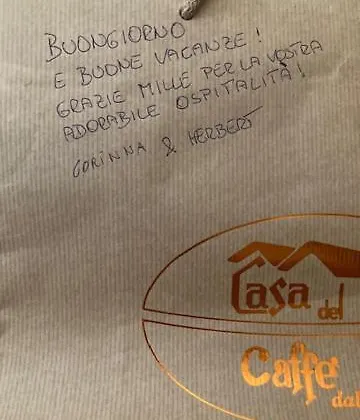 BUONGIORNO
E BUONE VACANZE!
GRAZIE MILLE PER LA VOSTRA
ADORABILE OSPITALITÀ!
CORINNA & HERBERT
Casa del
Caffè
dal